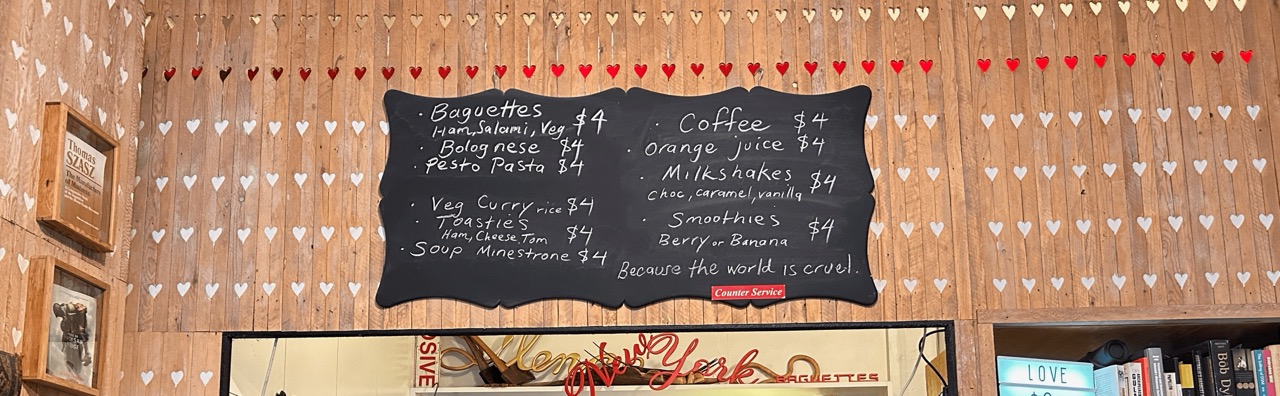 Thomas
SZASZ
The Manufacture
of Madness
· Baguettes $4
Ham, Salami, Veg
· Bolognese $4
· Pesto Pasta $4
· Veg Curry rice $4
· Toasties $4
Ham, Cheese, Tom
· Soup Minestrone $4
· Coffee $4
· Orange juice $4
· Milkshakes $4
choc, caramel, vanilla
· Smoothies $4
Berry or Banana
Because the world is cruel.
Counter Service
OSIVE
New York
BAGUETTES
LOVE
Bob Dy